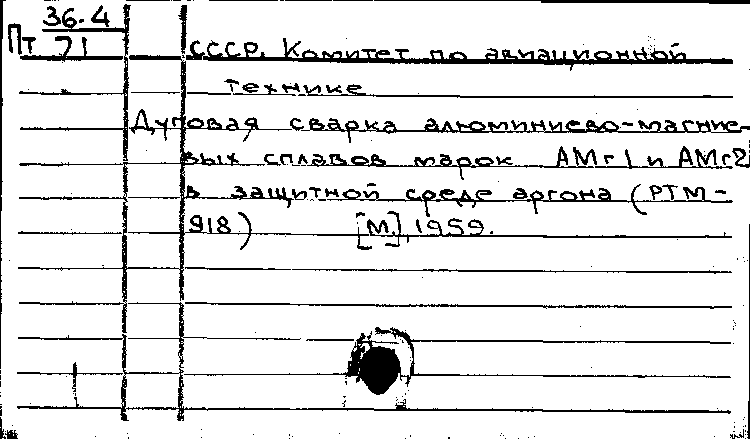 36.4
Пт 71
СССР. Комитет по авиационной
технике
Дуговая сварка алюминиево-магние-
вых сплавов марок АМг1 и АМг2
в защитной среде аргона (РТМ-
918) [М.], 1959.